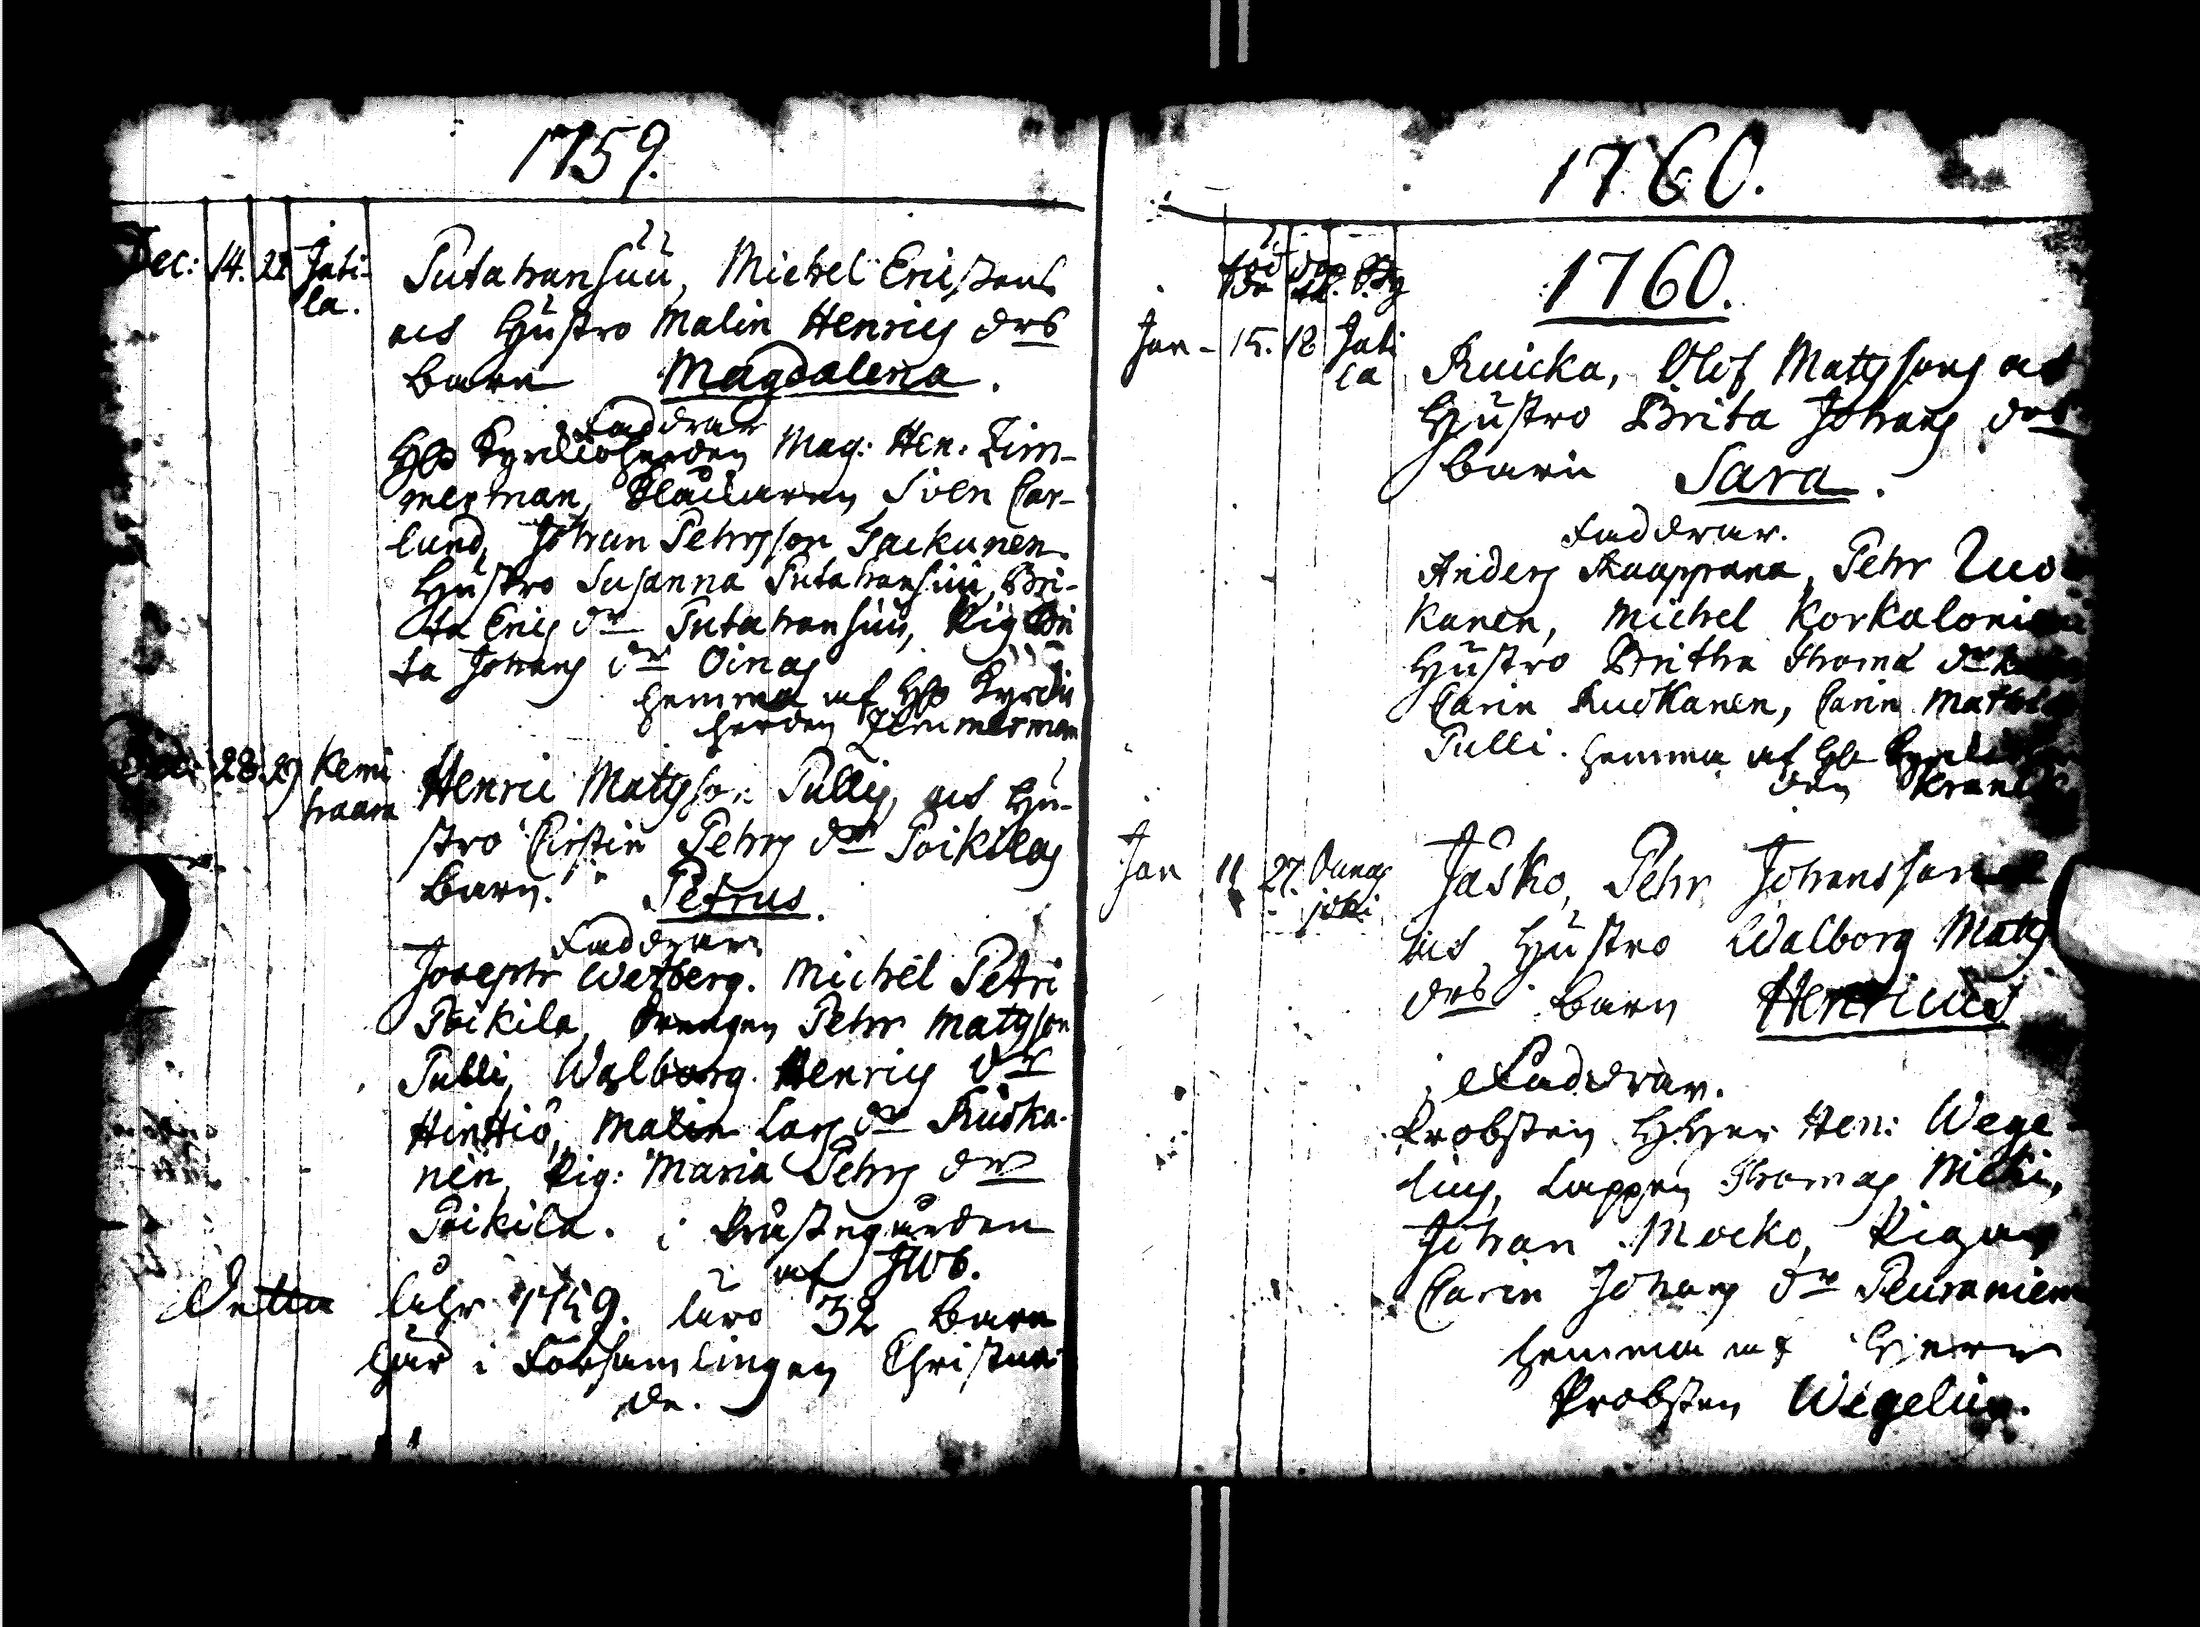 1759.
Dec: 14. 22 Jati-
la.
Putahansuu, Michel Ericsons
ads Hustro Malin Henrics drs
barn Magdalena.
Faddrar
Mag: Hen. Zim-
merman, Sven Car-
lund, Johan Pehrsson Tackunen
Hustro Susanna Putahansuu, Bri-
ta Erics dr Putahansuu, Pig Bri
ta Johans dr Oinas
hemma af Kyrckio
herden Zimmerman
28. 29 Kemi
haara
Henric Matsson Pullis, ads Hu-
stro Cirstin Pehrs dr Poikilas
barn. Petrus.
Faddrar
Joseph Wetberg. Michel Petri
Poikila, Drengen Pehr Matsson
Pulli, Walborg Henrics dr
Hinttiö, Malin Lars dr Ruoka-
nen, Pig: Maria Pehrs dr
Poikila. i Prästegården
af
Detta åhr 1759. äro 32 barn
här i Församlingen Christna-
de.
1760.
1760.
föd döp
de te. By
Jan - 15. 18 Jati
la
Kuicka, Olof Matssons ads
Hustro Brita Johans drs
barn Sara.
Faddrar.
Anders Kaappana, Pehr Ruo
kanen, Michel Korkaloniemi
Hustro Britha Thoma dr
Carin Ruokanen, Carin Mats
Pulli. hemma af
den
Jan 11 27. Ounas
joki
Jåsko, Pehr Johanssons
ads Hustro Walborg Mats
drs barn Henricus
Faddrar.
Probsten H Herr Hen: Wege-
lius, Lappen Thomas Niki,
Johan Mocko, Pigan
Carin Johans dr Peuraniemi
hemma af Herr
Probsten Wegelius.